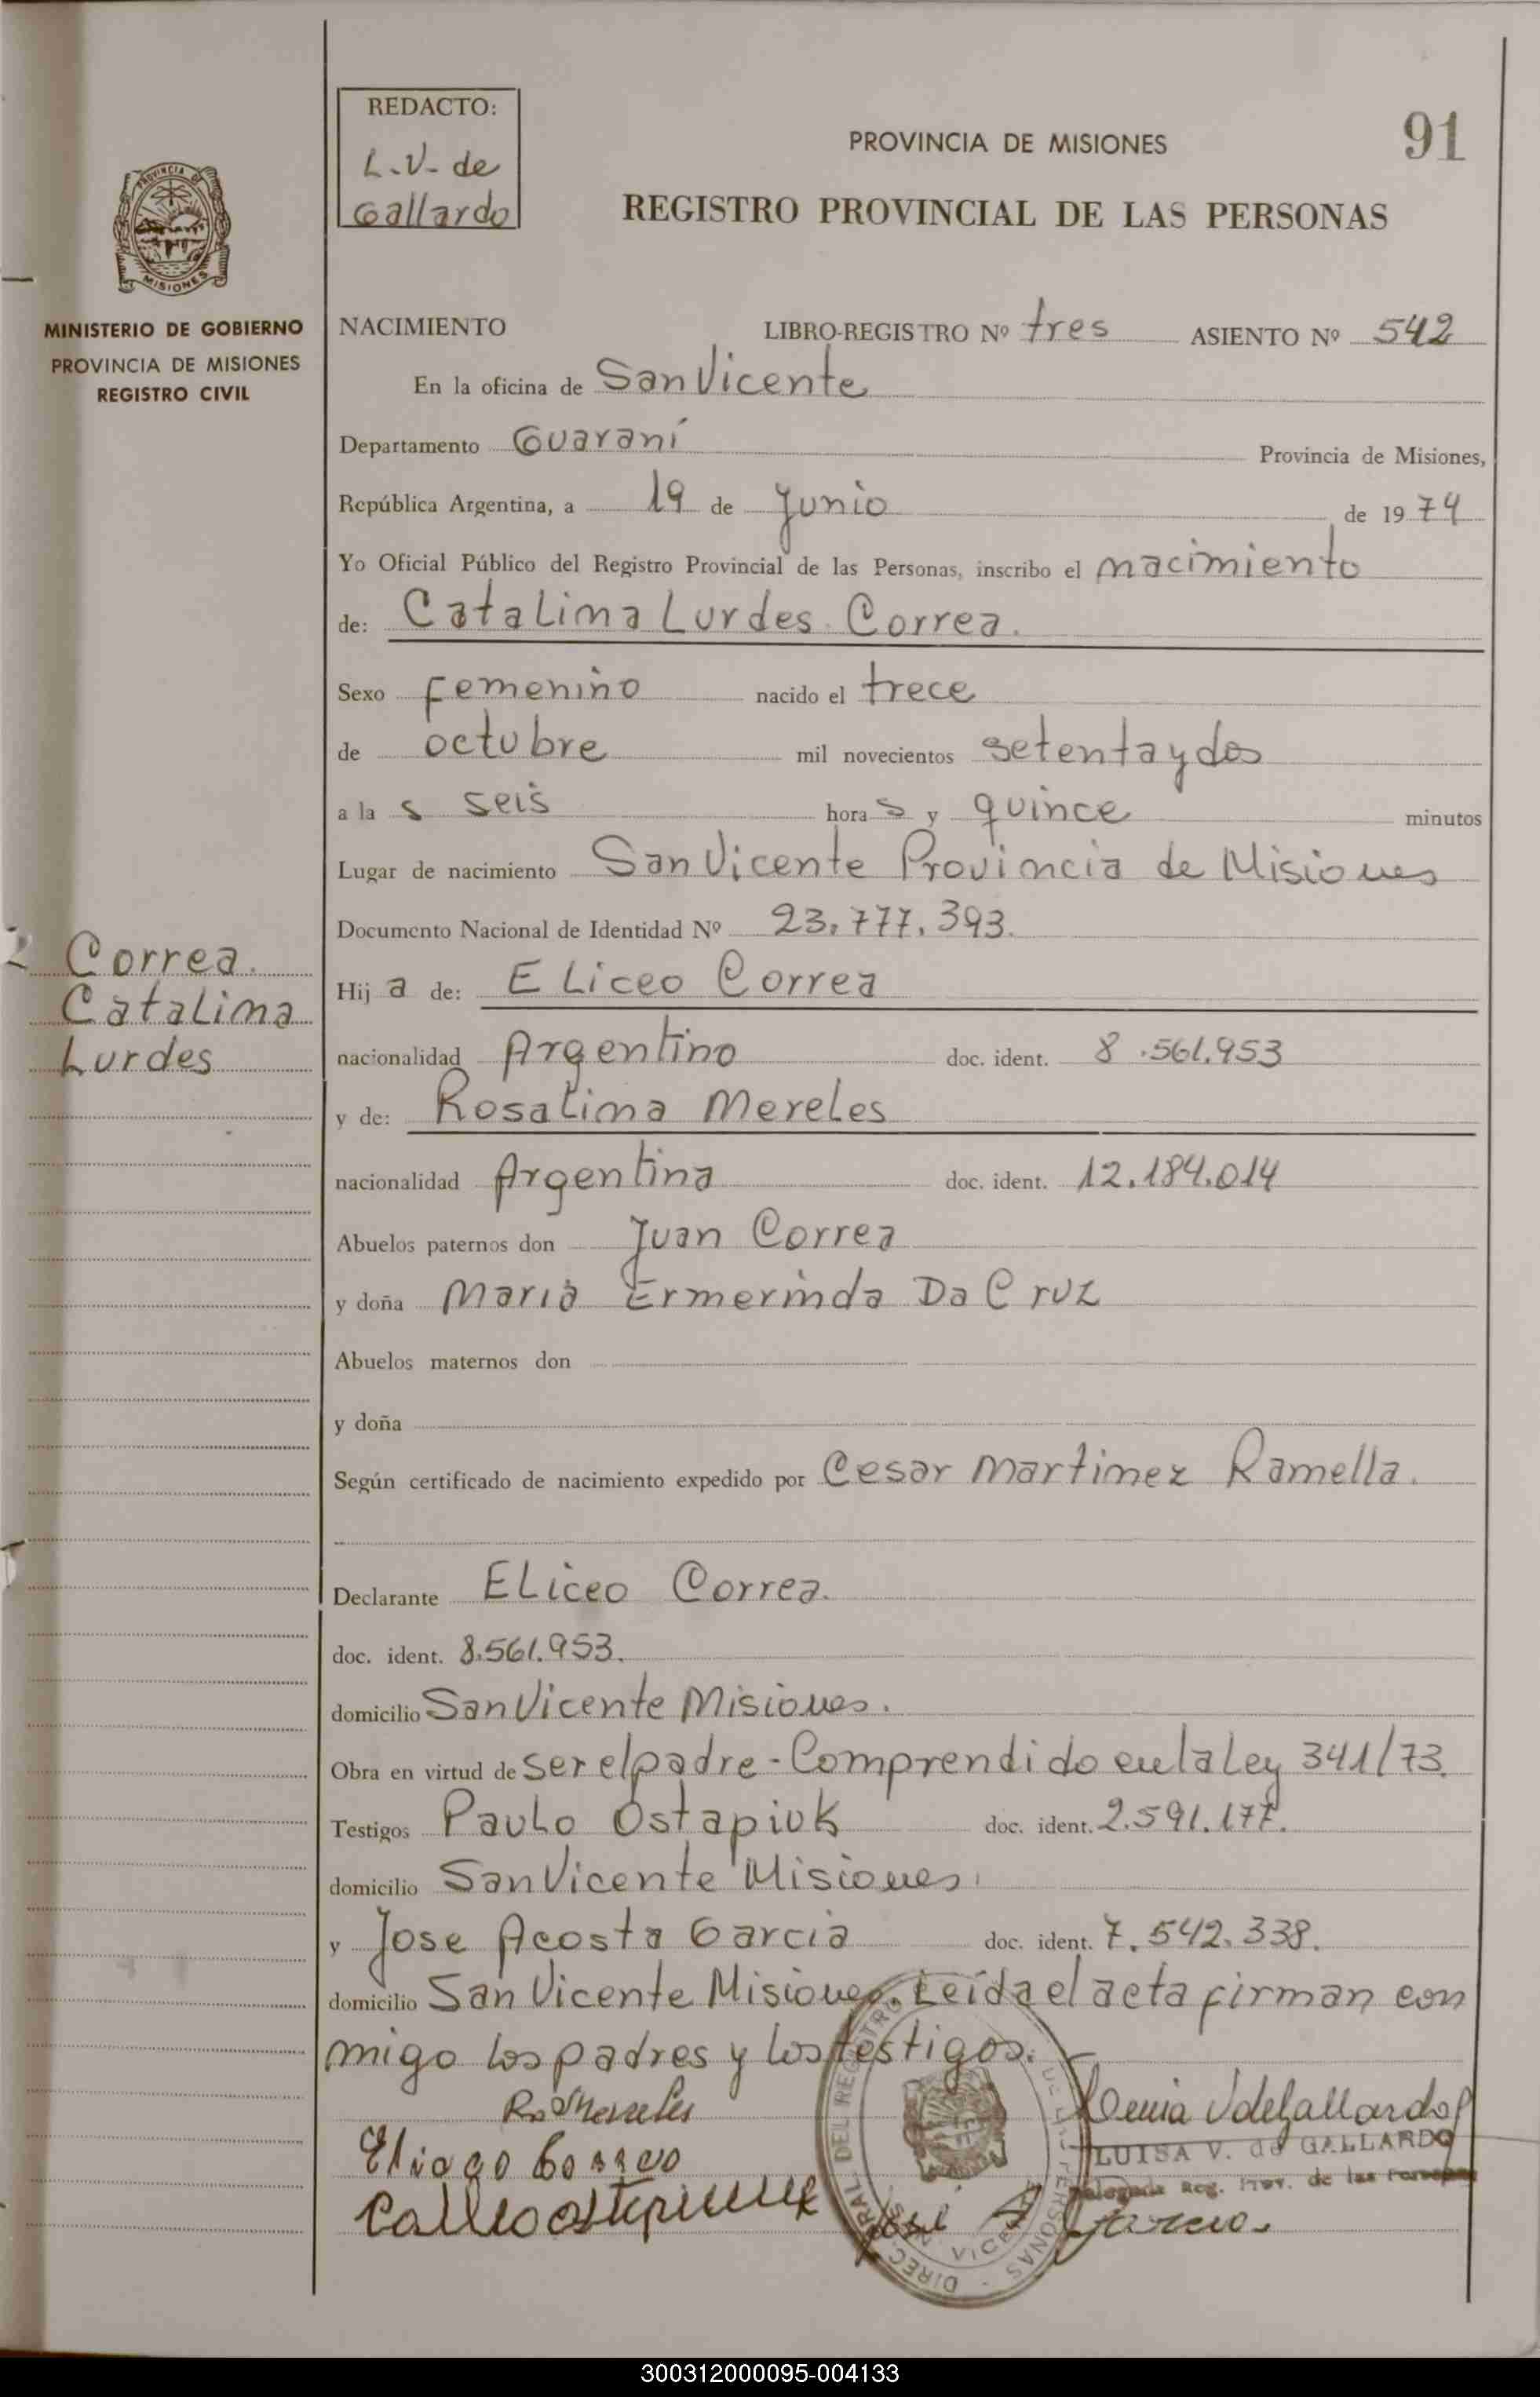 REDACTO:
L.V. de
Gallardo
91
PROVINCIA DE MISIONES
REGISTRO PROVINCIAL DE LAS PERSONAS
PROVINCIA DE
MISIONES
MINISTERIO DE GOBIERNO
PROVINCIA DE MISIONES
REGISTRO CIVIL
NACIMIENTO LIBRO-REGISTRO Nº tres ASIENTO Nº 542
En la oficina de San Vicente
Departamento Guaraní Provincia de Misiones,
República Argentina, a 19 de Junio de 1974
Yo Oficial Público del Registro Provincial de las Personas, inscribo el nacimiento
de: Catalina Lurdes Correa.
Sexo Femenino nacido el trece
de octubre mil novecientos setenta y dos
a la s seis hora s y quince minutos
Lugar de nacimiento San Vicente Provincia de Misiones
Documento Nacional de Identidad Nº 23.777.393.
Correa.
Catalina
Lurdes
Hij a de: Eliceo Correa
nacionalidad Argentino doc. ident. 8.561.953
y de: Rosalina Mereles
nacionalidad Argentina doc. ident. 12.184.014
Abuelos paternos don Juan Correa
y doña Maria Ermerinda Da Cruz
Abuelos maternos don
y doña
Según certificado de nacimiento expedido por Cesar Martinez Ramella.
Declarante Eliceo Correa.
doc. ident. 8.561.953.
domicilio San Vicente Misiones.
Obra en virtud de ser el padre - Comprendido en la Ley 341/73.
Testigos Paulo Ostapiuk doc. ident. 2.591.177.
domicilio San Vicente Misiones.
y Jose Acosta Garcia doc. ident. 7.542.338.
domicilio San Vicente Misiones. Leída el acta firman con
migo los padres y los testigos.
R. Mereles
LUISA V. de GALLARDO
Reg. Prov. de las Personas
José A Garcia.
300312000095-004133